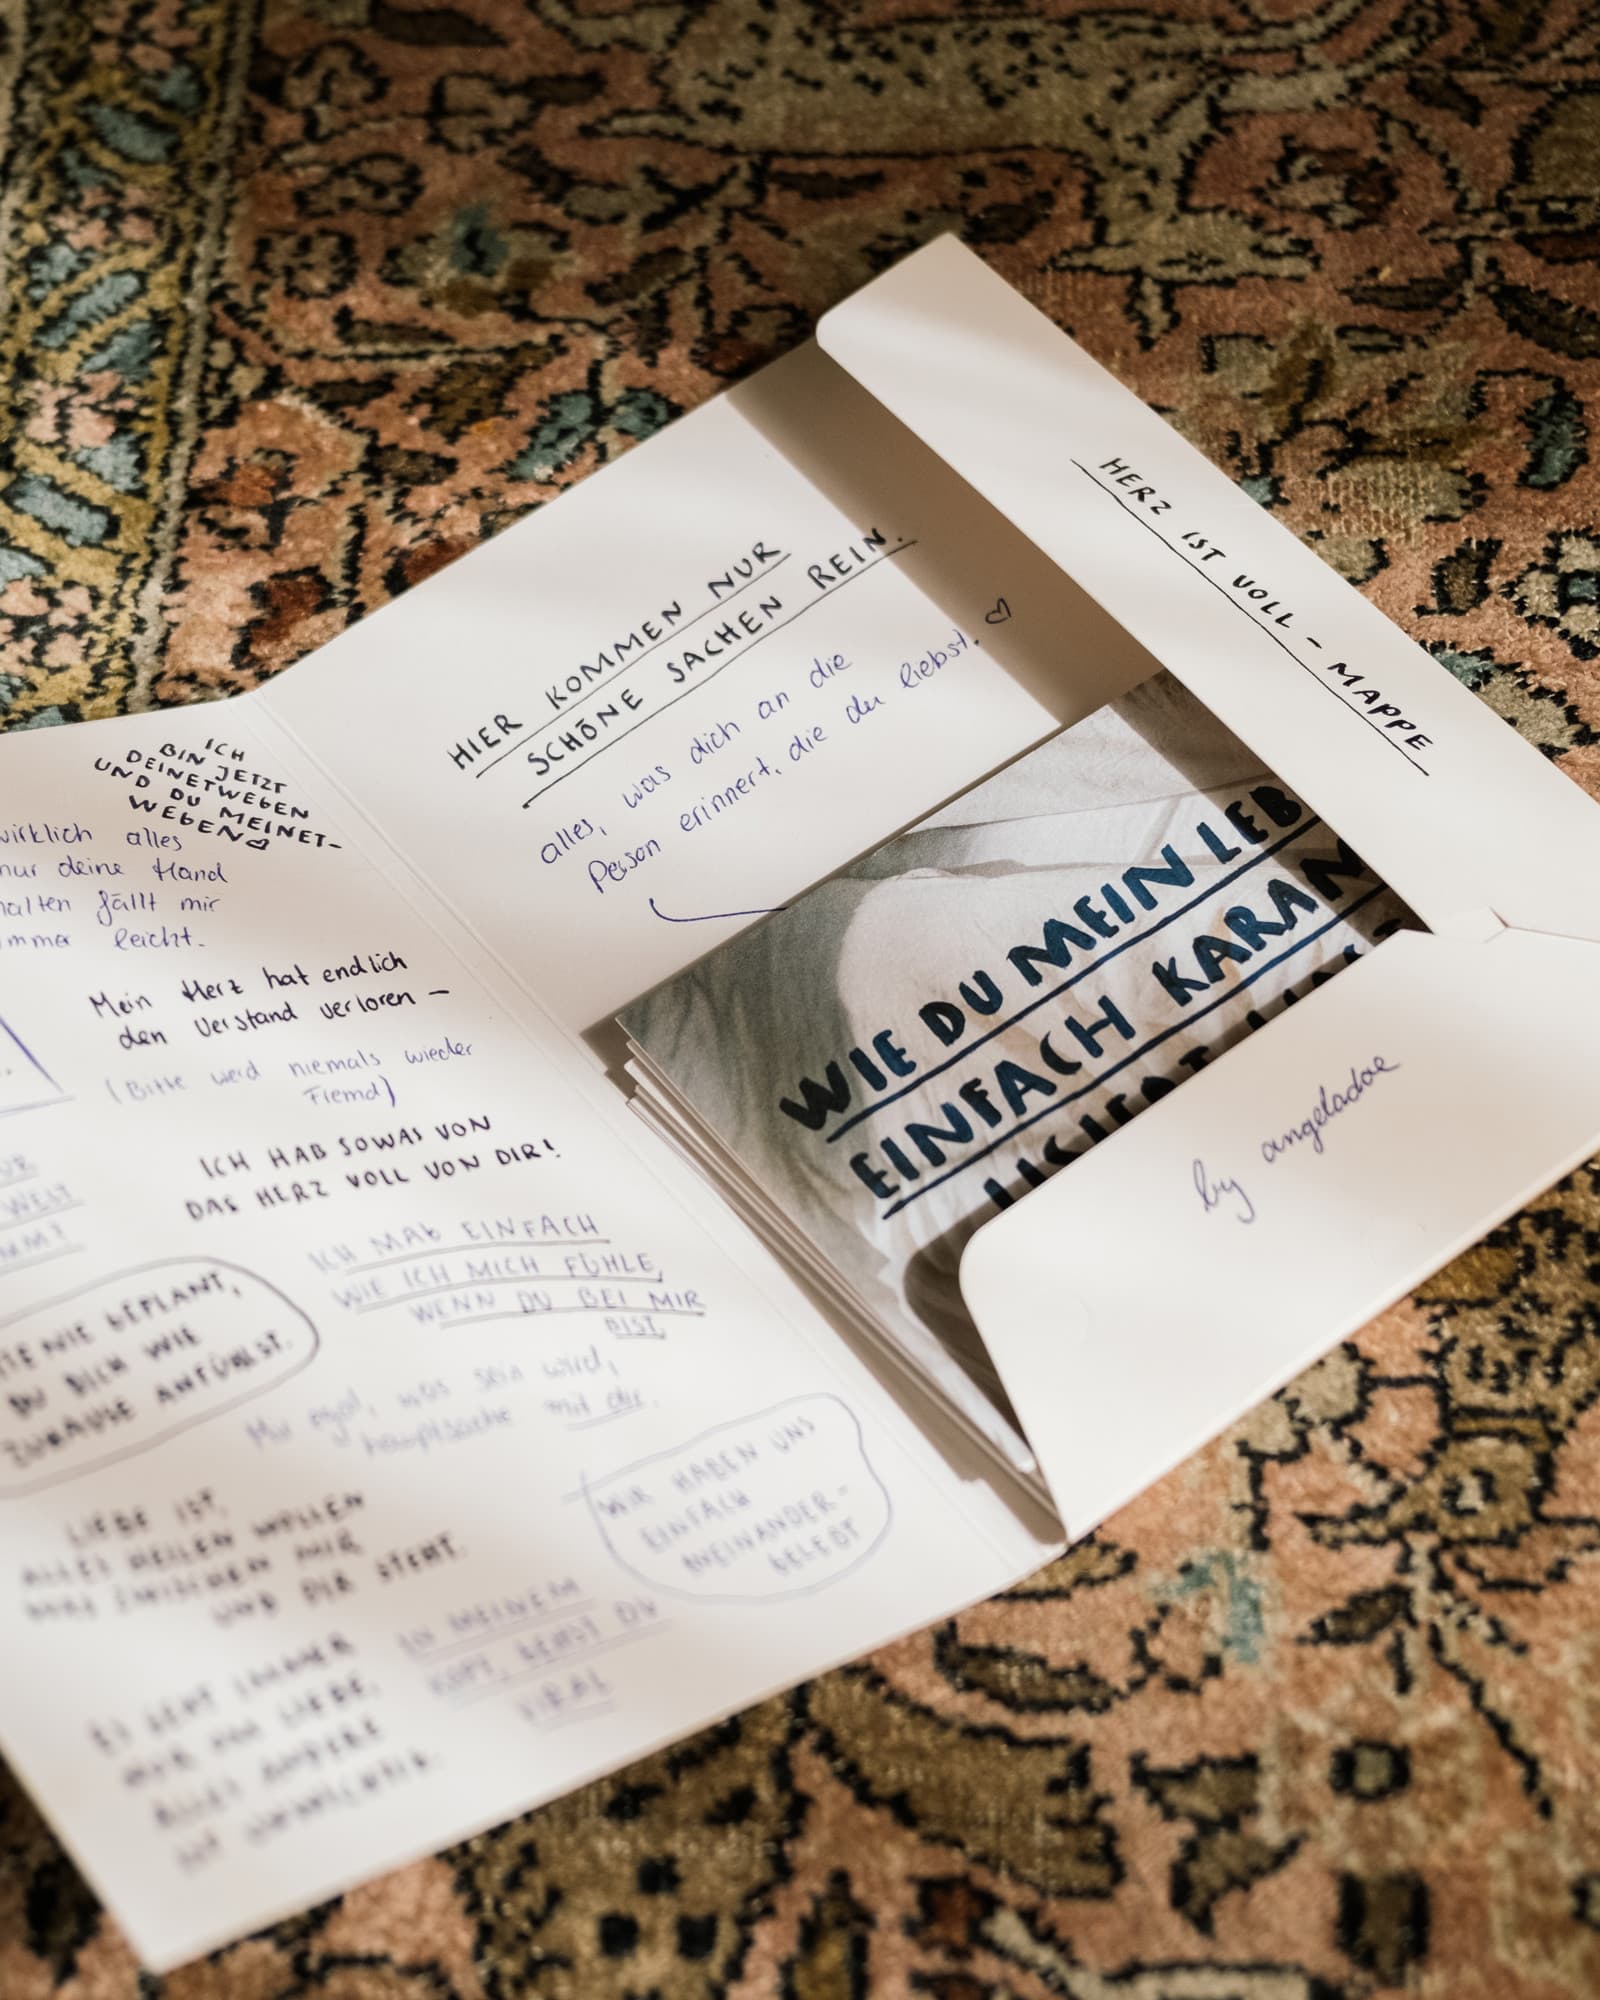 ICH
BIN JETZT
DEINETWEGEN
UND DU MEINET-
WEGEN
wirklich alles
nur deine Hand
halten fällt mir
immer leicht.
Mein Herz hat endlich
den Verstand verloren –
(Bitte werd niemals wieder
Fremd)
ICH HAB SOWAS VON
DAS HERZ VOLL VON DIR!
WELT
ICH MAG EINFACH
WIE ICH MICH FÜHLE,
WENN DU BEI MIR
BIST.
NIE GEPLANT,
DU DICH WIE
ZUHAUSE ANFÜHLST.
Mir egal, was sein wird,
hauptsache mit dir.
WIR HABEN UNS
EINFACH
INEINANDER-
GELEBT
LIEBE IST,
ALLES HEILEN WOLLEN
WAS ZWISCHEN MIR
UND DIR STEHT.
IN MEINEM
KOPF, GEHST DU
VIRAL
ES GEHT IMMER
NUR UM LIEBE,
ALLES ANDERE
IST
HIER KOMMEN NUR
SCHÖNE SACHEN REIN.
alles, was dich an die
Person erinnert, die du liebst.
WIE DU MEIN LEB
EINFACH KARAM
HERZ IST VOLL – MAPPE
by angeladoe